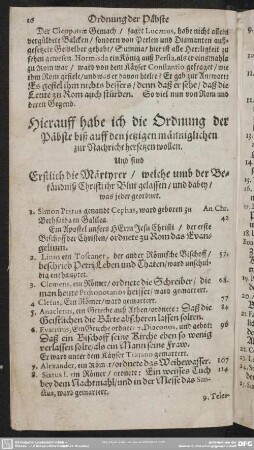 16 Ordnung der Päbste
Der Cleopatræ Gemach / sagt Lucanus, habe nicht allein
vergüldete Balcken / sondern von Perlen und Diamanten auff-
gesetzte Gewölber gehabt / Summa / hier ist alle Herrligkeit zu
sehen gewesen. Hormisda ein König auß Persia, als er einsmahls
zu Rom war / ward von dem Käyser Constantio gefraget / wie
ihm Rom gefiele / und was er davon hielte: Er gab zur Antwort:
Es gefiel ihm nichts bessers / denn daß er sehe / daß die
Leute zu Rom auch stürben. So viel nun von Rom und
deren Gegend.
Hierauff habe ich die Ordnung der
Päbste biß auff den jetzigen männiglichen
zur Nachricht hersetzen wollen.
Und sind
Erstlich die Märtyrer / welche umb der Be-
ständniß Christi ihr Blut gelassen / und dabey /
was jeder geordnet.
1. Simon Petrus genandt Cephas, ward geboren zu An. Chr.
Bethsaida in Galilea. 42
Ein Apostel unsers HErrn Jesu Christi / der erste
Bischoff der Christen / ordnete zu Rom das Evan-
gelium.
2. Linus ein Toscaner, der ander Römische Bischoff / 57.
beschrieb Petri Leben und Thaten / ward unschul-
dig enthauptet.
3. Clemens, ein Römer / ordnete die Schreiber / die 68.
man heute Protonotarios heisset / ward gemartert.
4. Cletus, Ein Römer / ward gemartert. 77
5. Anacletus, ein Grieche auß Athen / ordnete: Daß die 84
Geistlichen die Bärte abscheren lassen solten.
6. Evaristus, Ein Grieche ordnete 7. Diaconos, und gebott 96
Daß ein Bischoff seine Kirche eben so wenig
verlassen solte / als ein Mann seine Fraw.
Er ward unter dem Käyser Trajano gemartert.
7. Alexander, ein Röm. r / ordnete das Weihewasser. 107
8. Sixtus I. ein Römer / ordnete: Ein weisses Tuch 114
bey dem Nachtmahl / und in der Messe das San-
ctus, ward gemartert.
9. Teles-